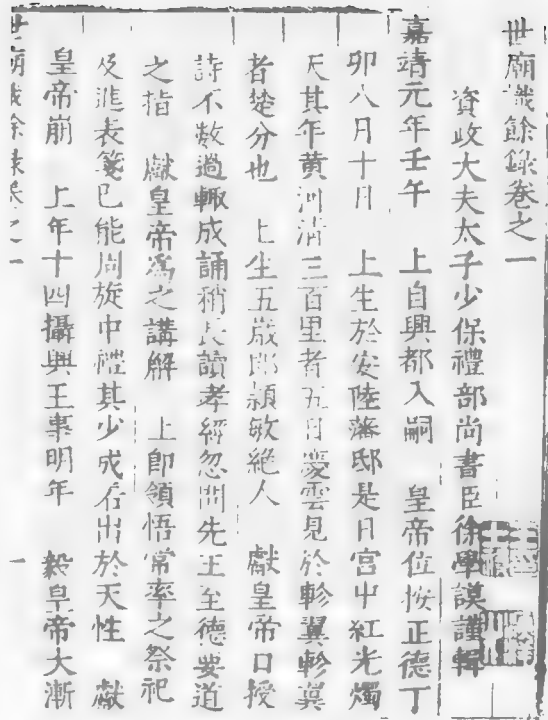 世廟識餘錄卷之一
資政大夫太子少保禮部尚書臣徐學謨謹輯
嘉靖元年壬午　上自興都入嗣　皇帝位按正德丁
卯八月十日　上生於安陸藩邸是日宮中紅光燭
天其年黃河清三百里者五日慶雲見於軫翼軫翼
者楚分也　上生五歲即穎敏絕人　獻皇帝口授
詩不數過輒成誦稍長讀孝經忽問先王至德要道
之指　獻皇帝爲之講解　上即領悟常率之祭祀
及進表箋已能周旋中禮其少成若出於天性　獻
皇帝崩　上年十四攝興王事明年　毅皇帝大漸
世廟識餘錄卷之一
一